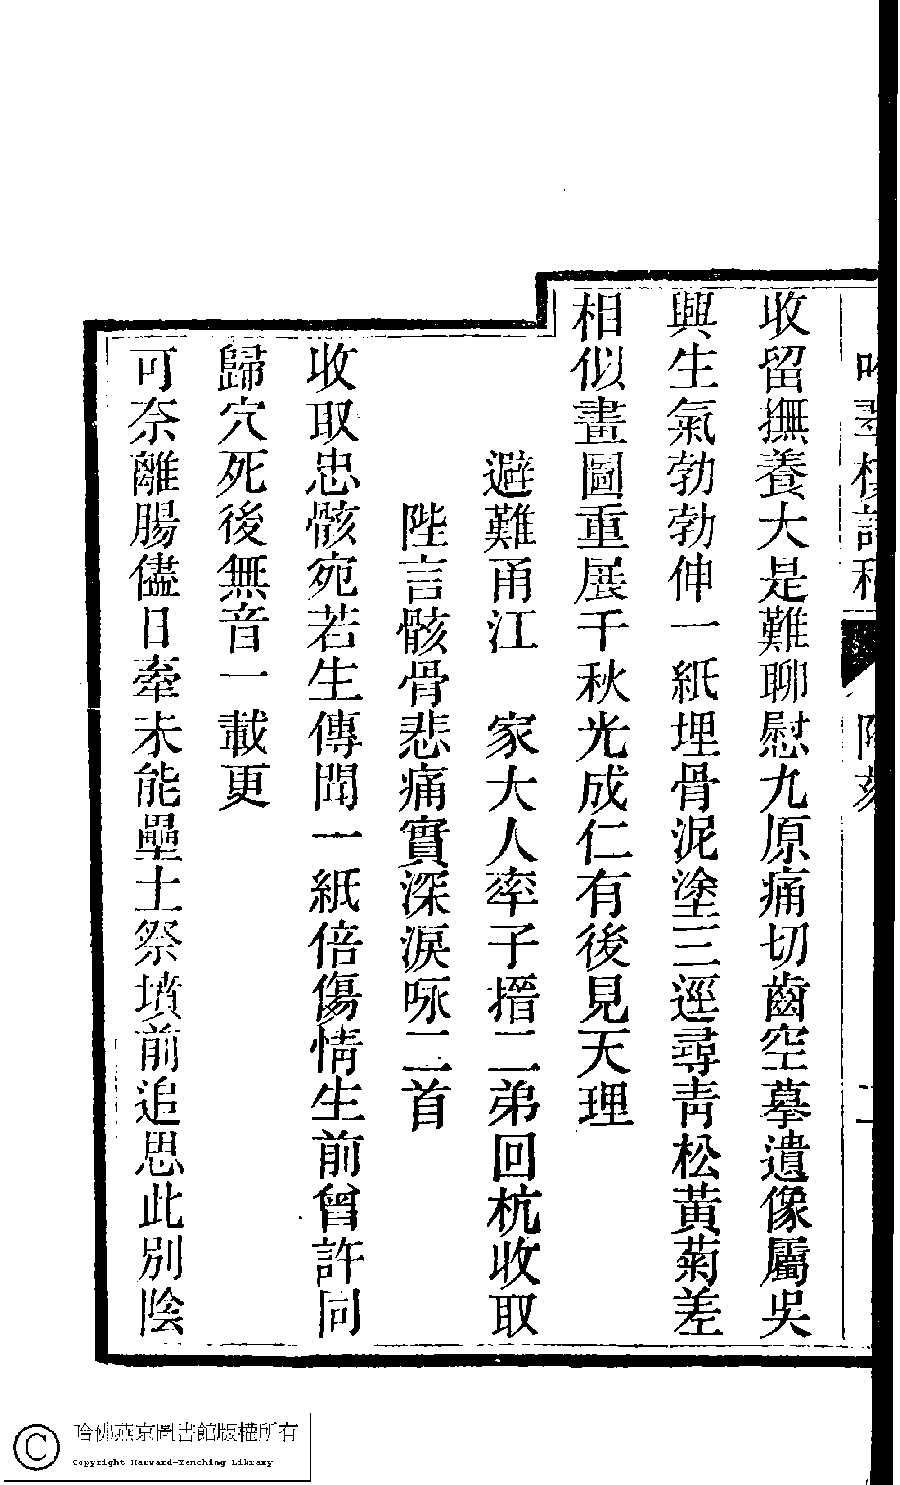 附刻
二
收留撫養大是難聊慰九原痛切齒空墓遺像屬吳
興生氣勃勃伸一紙埋骨泥塗三逕尋青松黃菊差
相似畫圖重展千秋光成仁有後見天理
避難甬江　家大人率子搢二弟回杭收取
陛言骸骨悲痛實深淚咏二首
收取忠骸宛若生傳聞一紙倍傷情生前曾許同
歸穴死後無音一載更
可奈離腸儘日牽未能壘土祭墳前追思此別陰
哈佛燕京圖書館版權所有
Copyright Harvard-Yenching Library